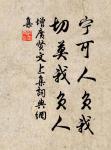 宁可人负我
切莫我负人
增广贤文上集词典网
集